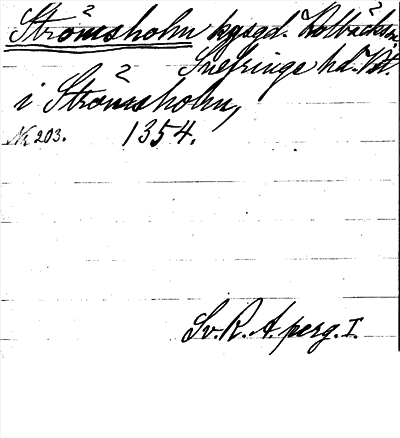 Strömsholm kgsgd. Kolbäcks sn
Snefringe hd. Vstm.
i Strömsholm,
Nr 203. 1354.
Sv. R. A. perg. I.